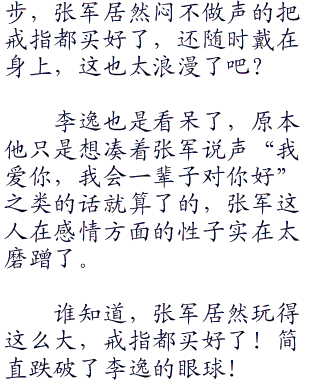 步，张军居然闷不做声的把
戒指都买好了，还随时戴在
身上，这也太浪漫了吧？
李逸也是看呆了，原本
他只是想凑着张军说声“我
爱你，我会一辈子对你好”
之类的话就算了的，张军这
人在感情方面的性子实在太
磨蹭了。
谁知道，张军居然玩得
这么大，戒指都买好了！简
直跌破了李逸的眼球！